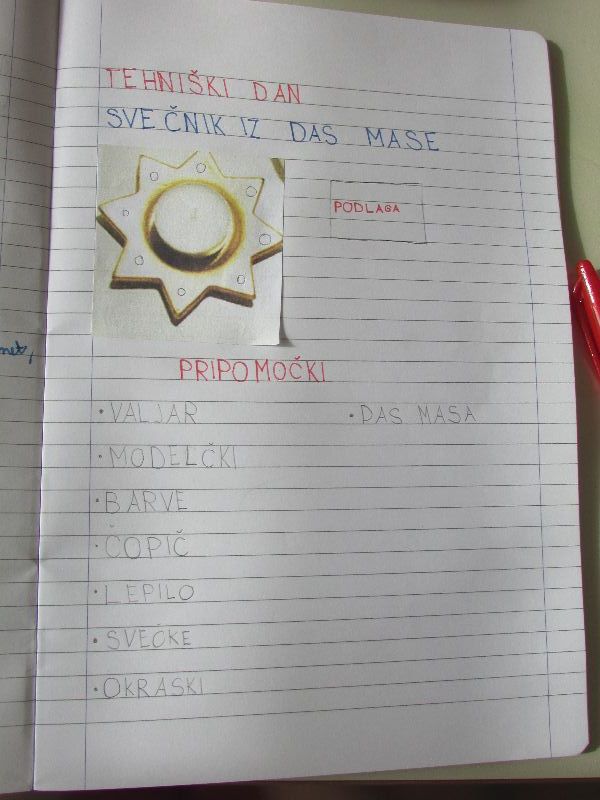 TEHNIŠKI DAN
SVEČNIK IZ DAS MASE
PODLAGA
PRIPOMOČKI
• VALJAR
• DAS MASA
• MODELČKI
• BARVE
• ČOPIČ
• LEPILO
• SVEČKE
• OKRASKI